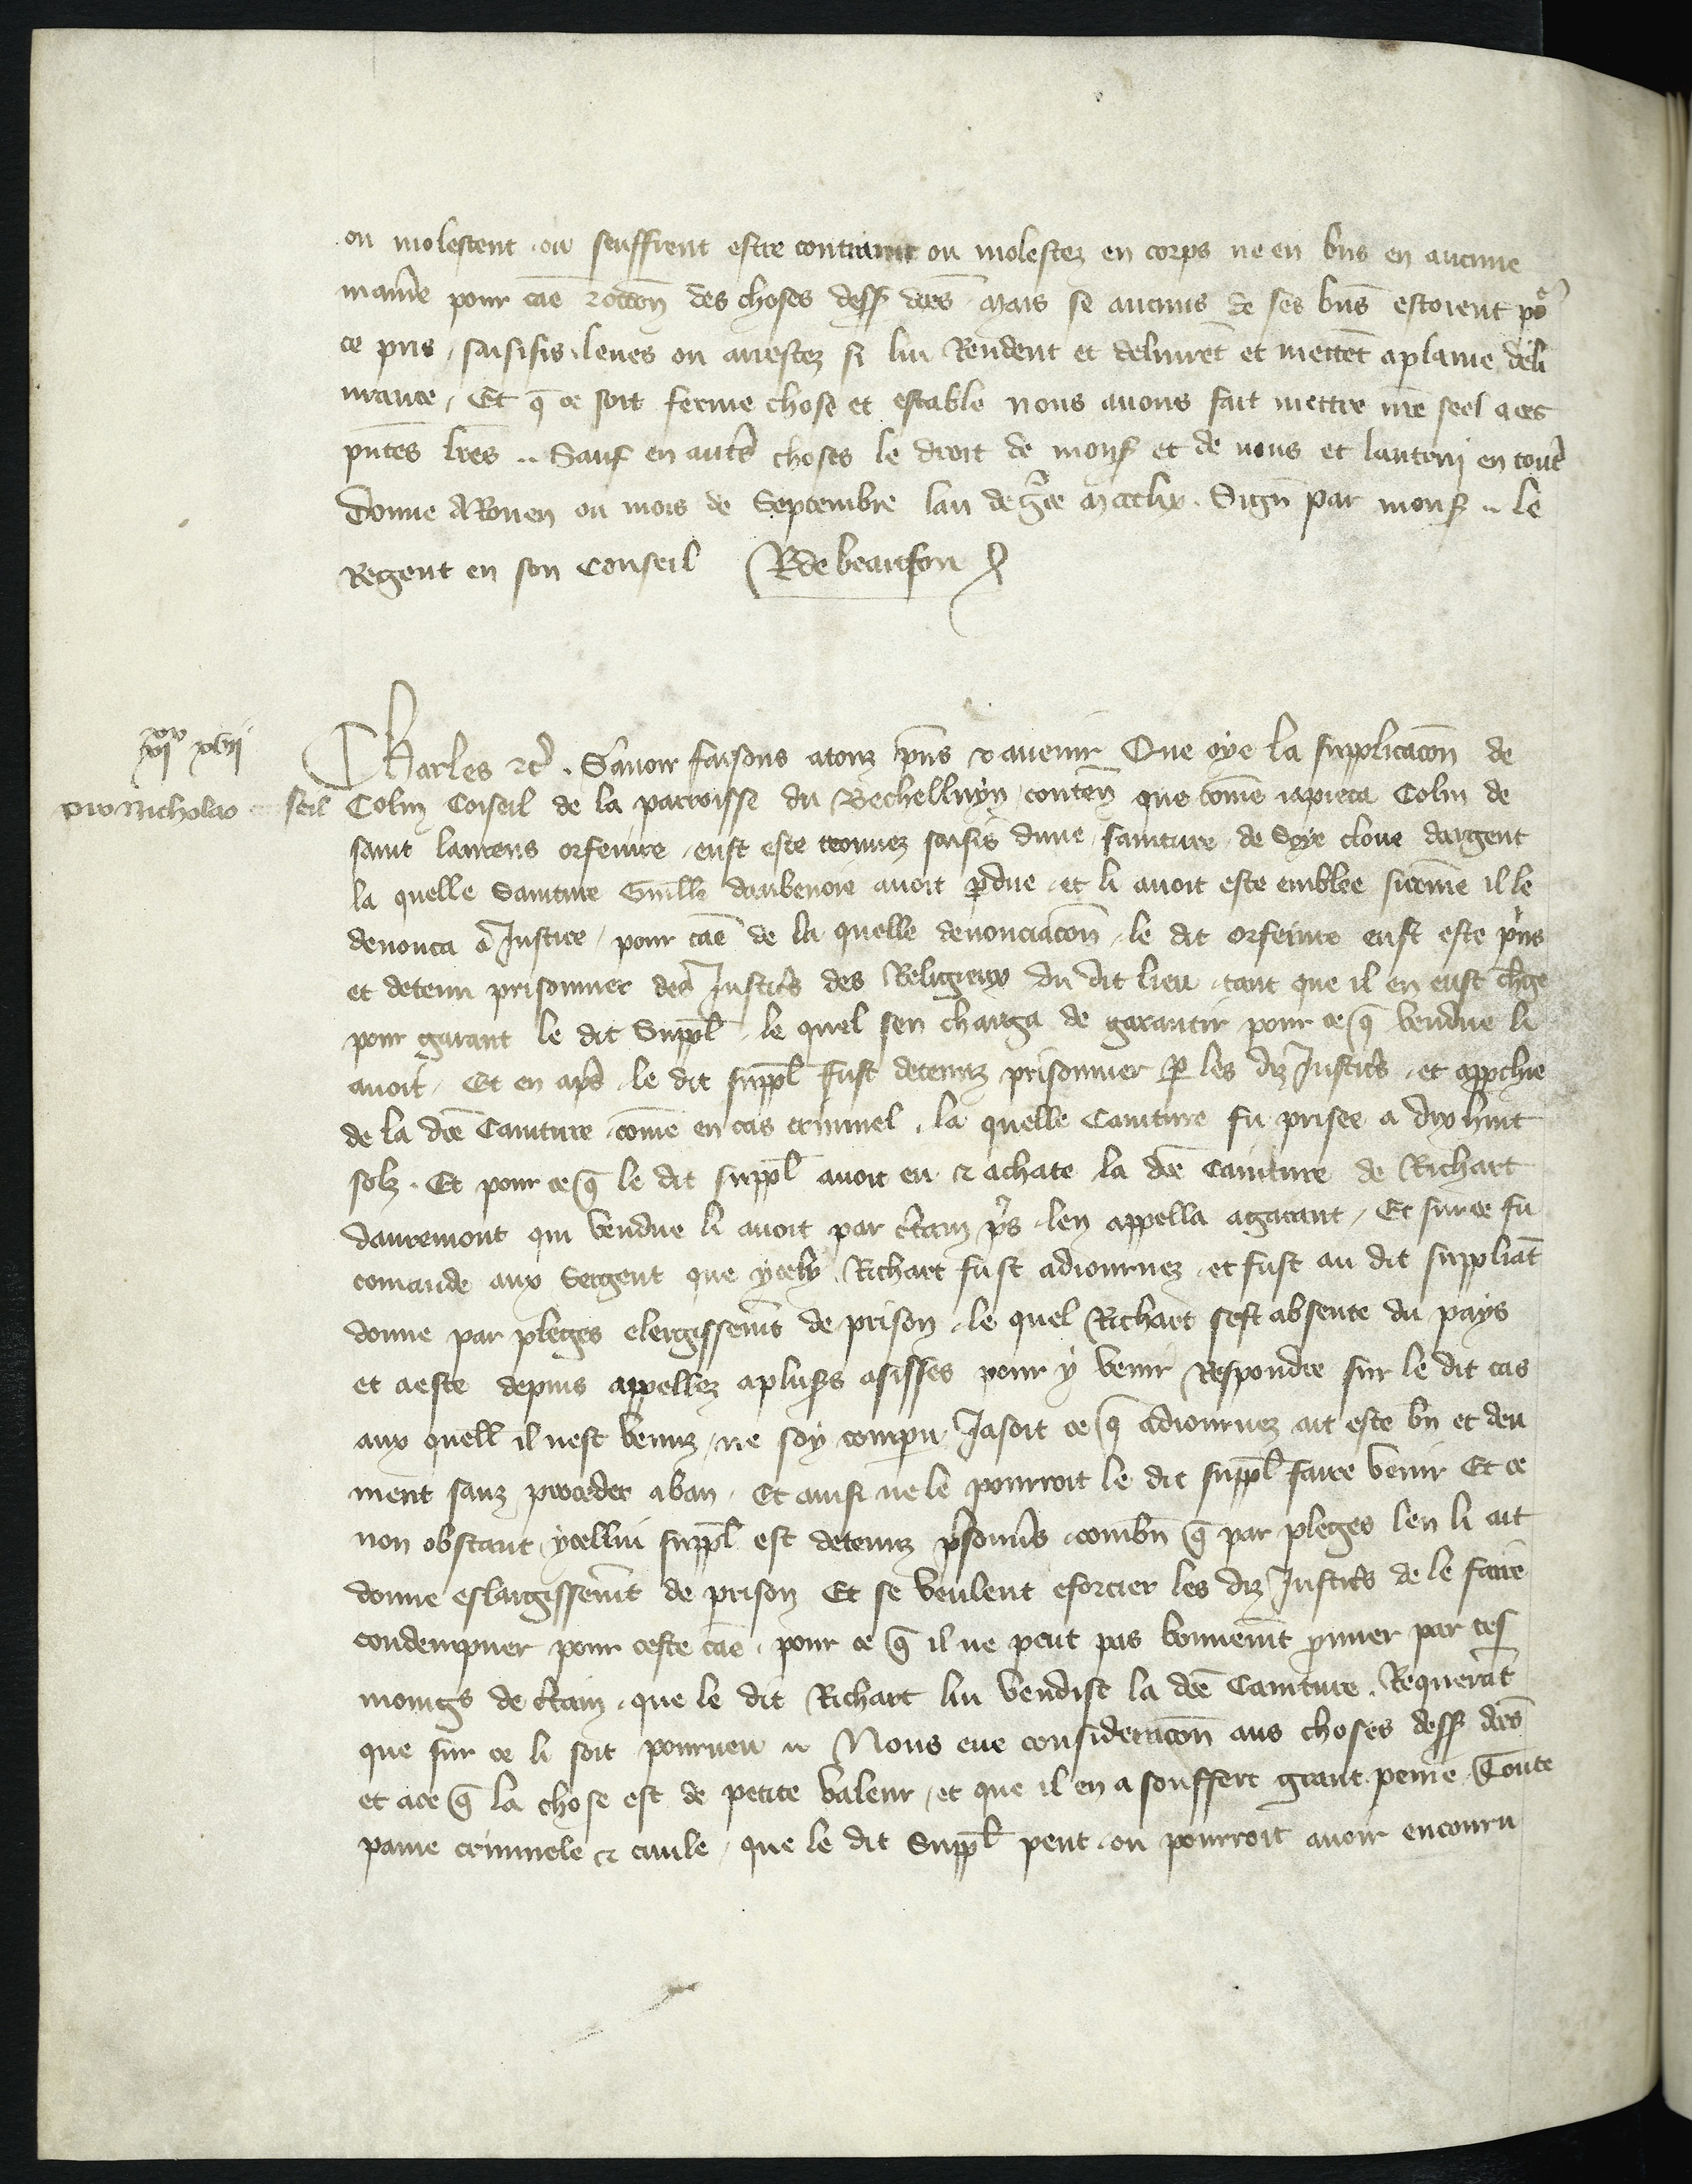 ou molestent ou seuffrent estre contraint ou molestez en corps ne en bns en aucune
manie pour cae & occon des choses dess des Mais se aucuns de ses bns estoient po
ce pris saisisis leues ou arrestez si lui Rendent et deliurent et mettet a plaine deli
urance Et q ce soit ferme chose et estable nous auons fait mettre nre seel a ces
pntes lres Sauf en autres choses le droit de mons et de nous et lautrui en toutes
Donne a Rouen ou mois de Septembre lan de gce mccclix Sign par mons le
Regent en son Conseil R de beaufou
xx
iiii xvii
pro Nicholao seil
Charles &c Sauoir faisons a touz pns & auenir Que oye la supplicacon de
Colin Coiseil de la parroisse du Bechelluyn conten que come iapieca Colin de
saint laurens orfeuure eust este trouuez saisis dune sainture de Soye cloue dargent
la quelle Sainture Guille daubenoie auoit pdue et li auoit este emblee sicome il le
denonca a Justice pour cae de la quelle denonciacon le dit orfeure eust este pris
et detenu prisonnier des Justices des Religieux du dit lieu tant que il en eust chge
pour garant le dit Suppl le quel sen charga de garantir pour ce q vendue li
auoit Et en aps le dit suppl fust detenuz prisonnier p les diz Justices et approchie
de la de Cainture come en cas criminel la quelle Cainture fu prisee a dix huit
solz Et pour ce q le dit suppl auoit eu & achate la de Cainture de Richart
dauremont qui vendue li auoit par certain pris len appella a garant Et sur ce fu
comande aux Sergent que ycely Richart fust adiournez et fust au dit suppliat
donne par pleges elergissemt de prison le quel Richart sest absente du pays
et a este depuis appellez a pluss asisses pour y venir Respondre sur le dit cas
aux quell il nest venuz ne soy compu Jasoit ce q adiournez ait este bn et deu
ment sanz proceder a ban Et ainsi ne le pourroit le dit suppl faire venir Et ce
non obstant ycellui suppl est detenuz prsonnis combn q par pleges len li ait
donne eslargissemt de prison Et se veulent esforcier les diz Justices de le faire
condempner pour ceste cae pour ce q il ne peut pas bonnemt prouuer par tes
moings de certain que le dit Richart lui vendist la de Cainture Requerat
que sur ce li soit pourueu Nous eue consideracon aus choses dess des
et a ce q la chose est de petite valeur et que il en a souffert grant peine Toute
paine criminele & ciuile que le dit Suppl peut ou pourroit auoir encouru